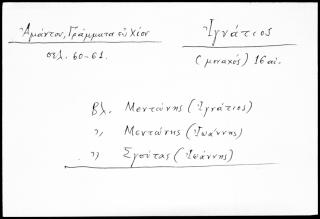 Ἀμάντου, Γράμματα ἐν Χίῳ
σελ. 60-61.
Ἰγνάτιος
(μοναχός) 16 αἰ.
βλ. Μεντώνης (Ἰγνάτιος)
" Μεντώνης (Ἰωάννης)
" Σγούτας (Ἰωάννης)